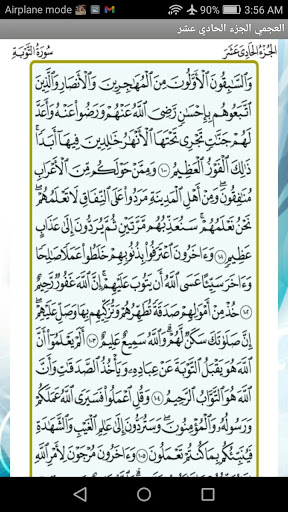 Airplane mode 93% 3:56 AM
العجمي الجزء الحادي عشر
الجُزْءُ الحَادِى عَشَرَ سُورَةُ التَّوْبَةِ
وَٱلسَّٰبِقُونَ ٱلْأَوَّلُونَ مِنَ ٱلْمُهَٰجِرِينَ وَٱلْأَنصَارِ وَٱلَّذِينَ
ٱتَّبَعُوهُم بِإِحْسَٰنٍ رَّضِىَ ٱللَّهُ عَنْهُمْ وَرَضُوا۟ عَنْهُ وَأَعَدَّ
لَهُمْ جَنَّٰتٍ تَجْرِى تَحْتَهَا ٱلْأَنْهَٰرُ خَٰلِدِينَ فِيهَآ أَبَدًا ۚ
ذَٰلِكَ ٱلْفَوْزُ ٱلْعَظِيمُ ١٠٠ وَمِمَّنْ حَوْلَكُم مِّنَ ٱلْأَعْرَابِ
مُنَٰفِقُونَ ۖ وَمِنْ أَهْلِ ٱلْمَدِينَةِ ۖ مَرَدُوا۟ عَلَى ٱلنِّفَاقِ لَا تَعْلَمُهُمْ ۖ
نَحْنُ نَعْلَمُهُمْ ۚ سَنُعَذِّبُهُم مَّرَّتَيْنِ ثُمَّ يُرَدُّونَ إِلَىٰ عَذَابٍ
عَظِيمٍ ١٠١ وَءَاخَرُونَ ٱعْتَرَفُوا۟ بِذُنُوبِهِمْ خَلَطُوا۟ عَمَلًا صَٰلِحًا
وَءَاخَرَ سَيِّئًا عَسَى ٱللَّهُ أَن يَتُوبَ عَلَيْهِمْ ۚ إِنَّ ٱللَّهَ غَفُورٌ رَّحِيمٌ
١٠٢ خُذْ مِنْ أَمْوَٰلِهِمْ صَدَقَةً تُطَهِّرُهُمْ وَتُزَكِّيهِم بِهَا وَصَلِّ عَلَيْهِمْ ۖ
إِنَّ صَلَوٰتَكَ سَكَنٌ لَّهُمْ ۗ وَٱللَّهُ سَمِيعٌ عَلِيمٌ ١٠٣ أَلَمْ يَعْلَمُوٓا۟ أَنَّ
ٱللَّهَ هُوَ يَقْبَلُ ٱلتَّوْبَةَ عَنْ عِبَادِهِۦ وَيَأْخُذُ ٱلصَّدَقَٰتِ وَأَنَّ
ٱللَّهَ هُوَ ٱلتَّوَّابُ ٱلرَّحِيمُ ١٠٤ وَقُلِ ٱعْمَلُوا۟ فَسَيَرَى ٱللَّهُ عَمَلَكُمْ
وَرَسُولُهُۥ وَٱلْمُؤْمِنُونَ ۖ وَسَتُرَدُّونَ إِلَىٰ عَٰلِمِ ٱلْغَيْبِ وَٱلشَّهَٰدَةِ
فَيُنَبِّئُكُم بِمَا كُنتُمْ تَعْمَلُونَ ١٠٥ وَءَاخَرُونَ مُرْجَوْنَ لِأَمْرِ ٱللَّهِ